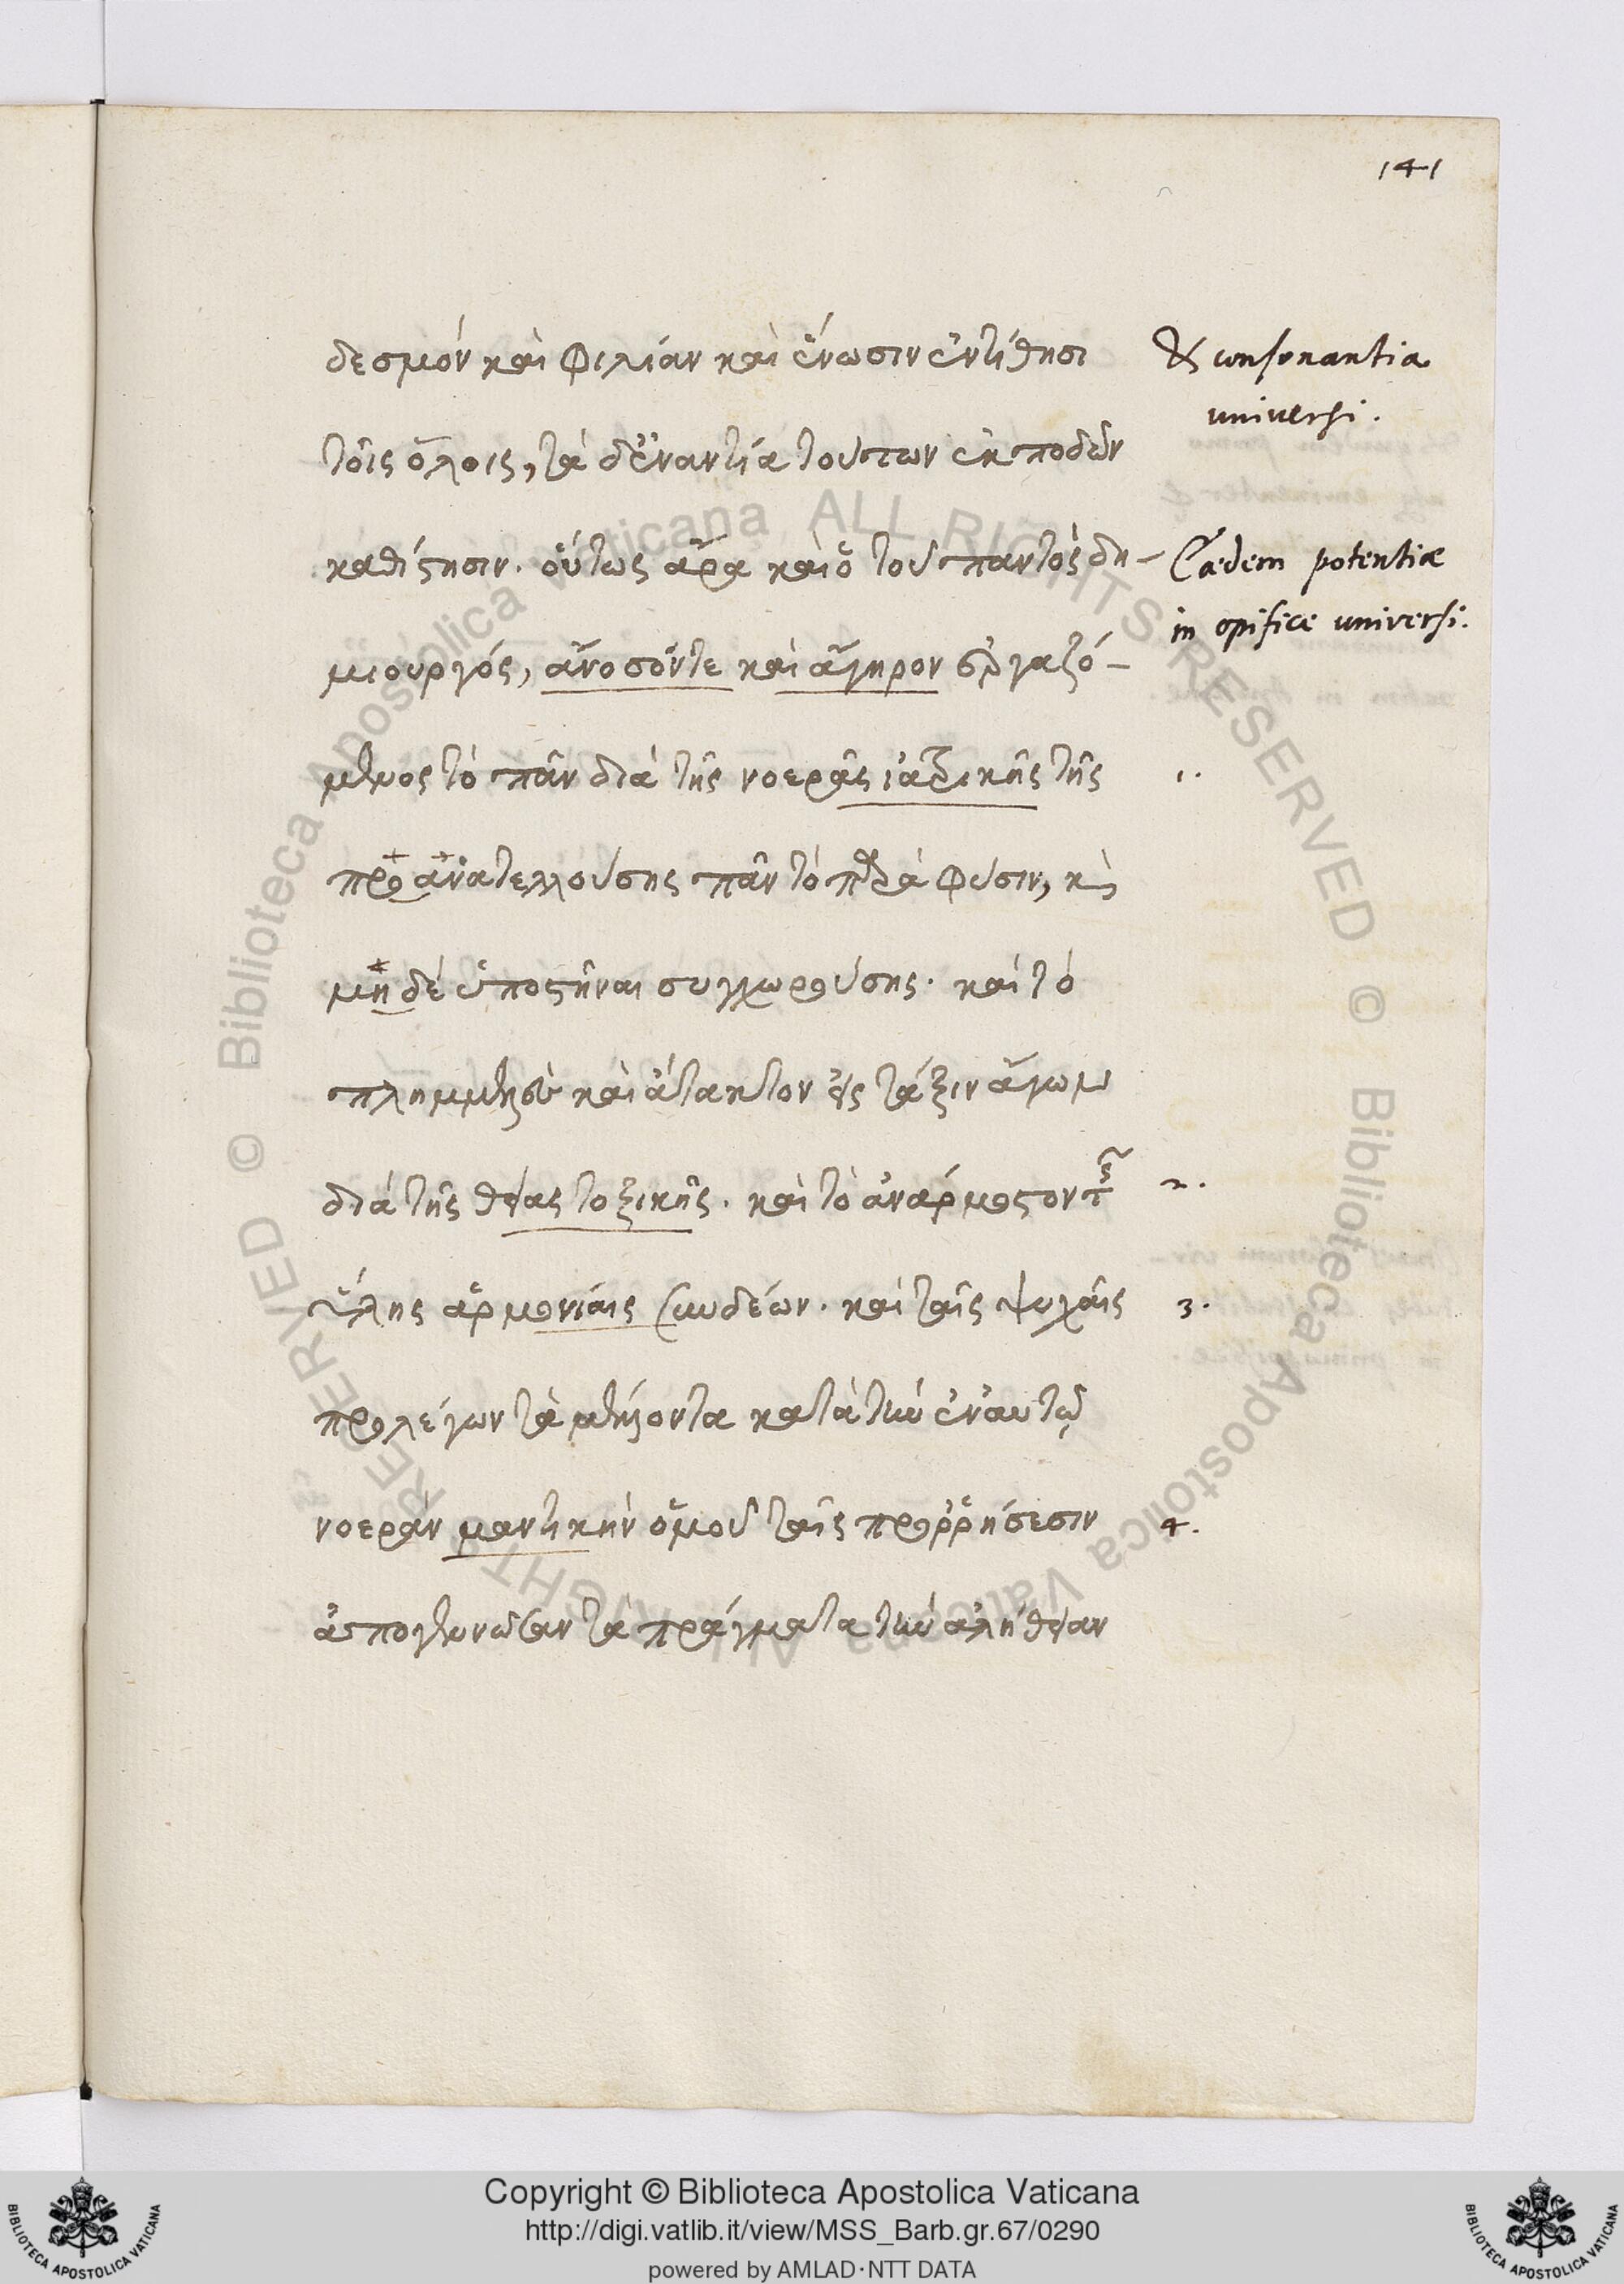 141
δεσμόν καὶ φιλίαν καὶ ἕνωσιν ἐντίθησι
τοῖς ὅλοις, τὰ δ' ἐναντία τούτων ἐκποδὼν
καθίστησιν. οὕτως ἄρα καὶ ὁ τοῦ παντὸς δη-
μιουργός, ἄνοσόν τε καὶ ἄγηρον ἐργαζό-
μενος τὸ πᾶν διὰ τῆς νοερᾶς ἰατρικῆς τῆς
προανατελλούσης πᾶν τὸ παρὰ φύσιν, καὶ
μηδὲ ὑποστῆναι συγχωρούσης. καὶ τὸ
πλημμελὲς καὶ ἄτακτον εἰς τάξιν ἄγων
διὰ τῆς θείας τοξικῆς. καὶ τὸ ἀνάρμοστον τῆς
ὕλης ἁρμονίαις συνδέων. καὶ ταῖς ψυχαῖς
προλέγων τὰ μέλλοντα κατὰ τὴν ἐν αυτῷ
νοερὰν μαντικὴν ὁμοῦ ταῖς προῤῥήσεσιν
ἀπογεννῶσαν τὰ πράγματα τὴν ἀλήθειαν
& consonantia
universi.
Eædem potentiæ
in opifice universi.
1.
2.
3.
4.
Copyright © Biblioteca Apostolica Vaticana
http://digi.vatlib.it/view/MSS_Barb.gr.67/0290
powered by AMLAD·NTT DATA
© Biblioteca Apostolica Vaticana ALL RIGHTS RESERVED © Biblioteca Apostolica Vaticana ALL RIGHTS RESERVED
BIBLIOTECA APOSTOLICA VATICANA
BIBLIOTECA APOSTOLICA VATICANA